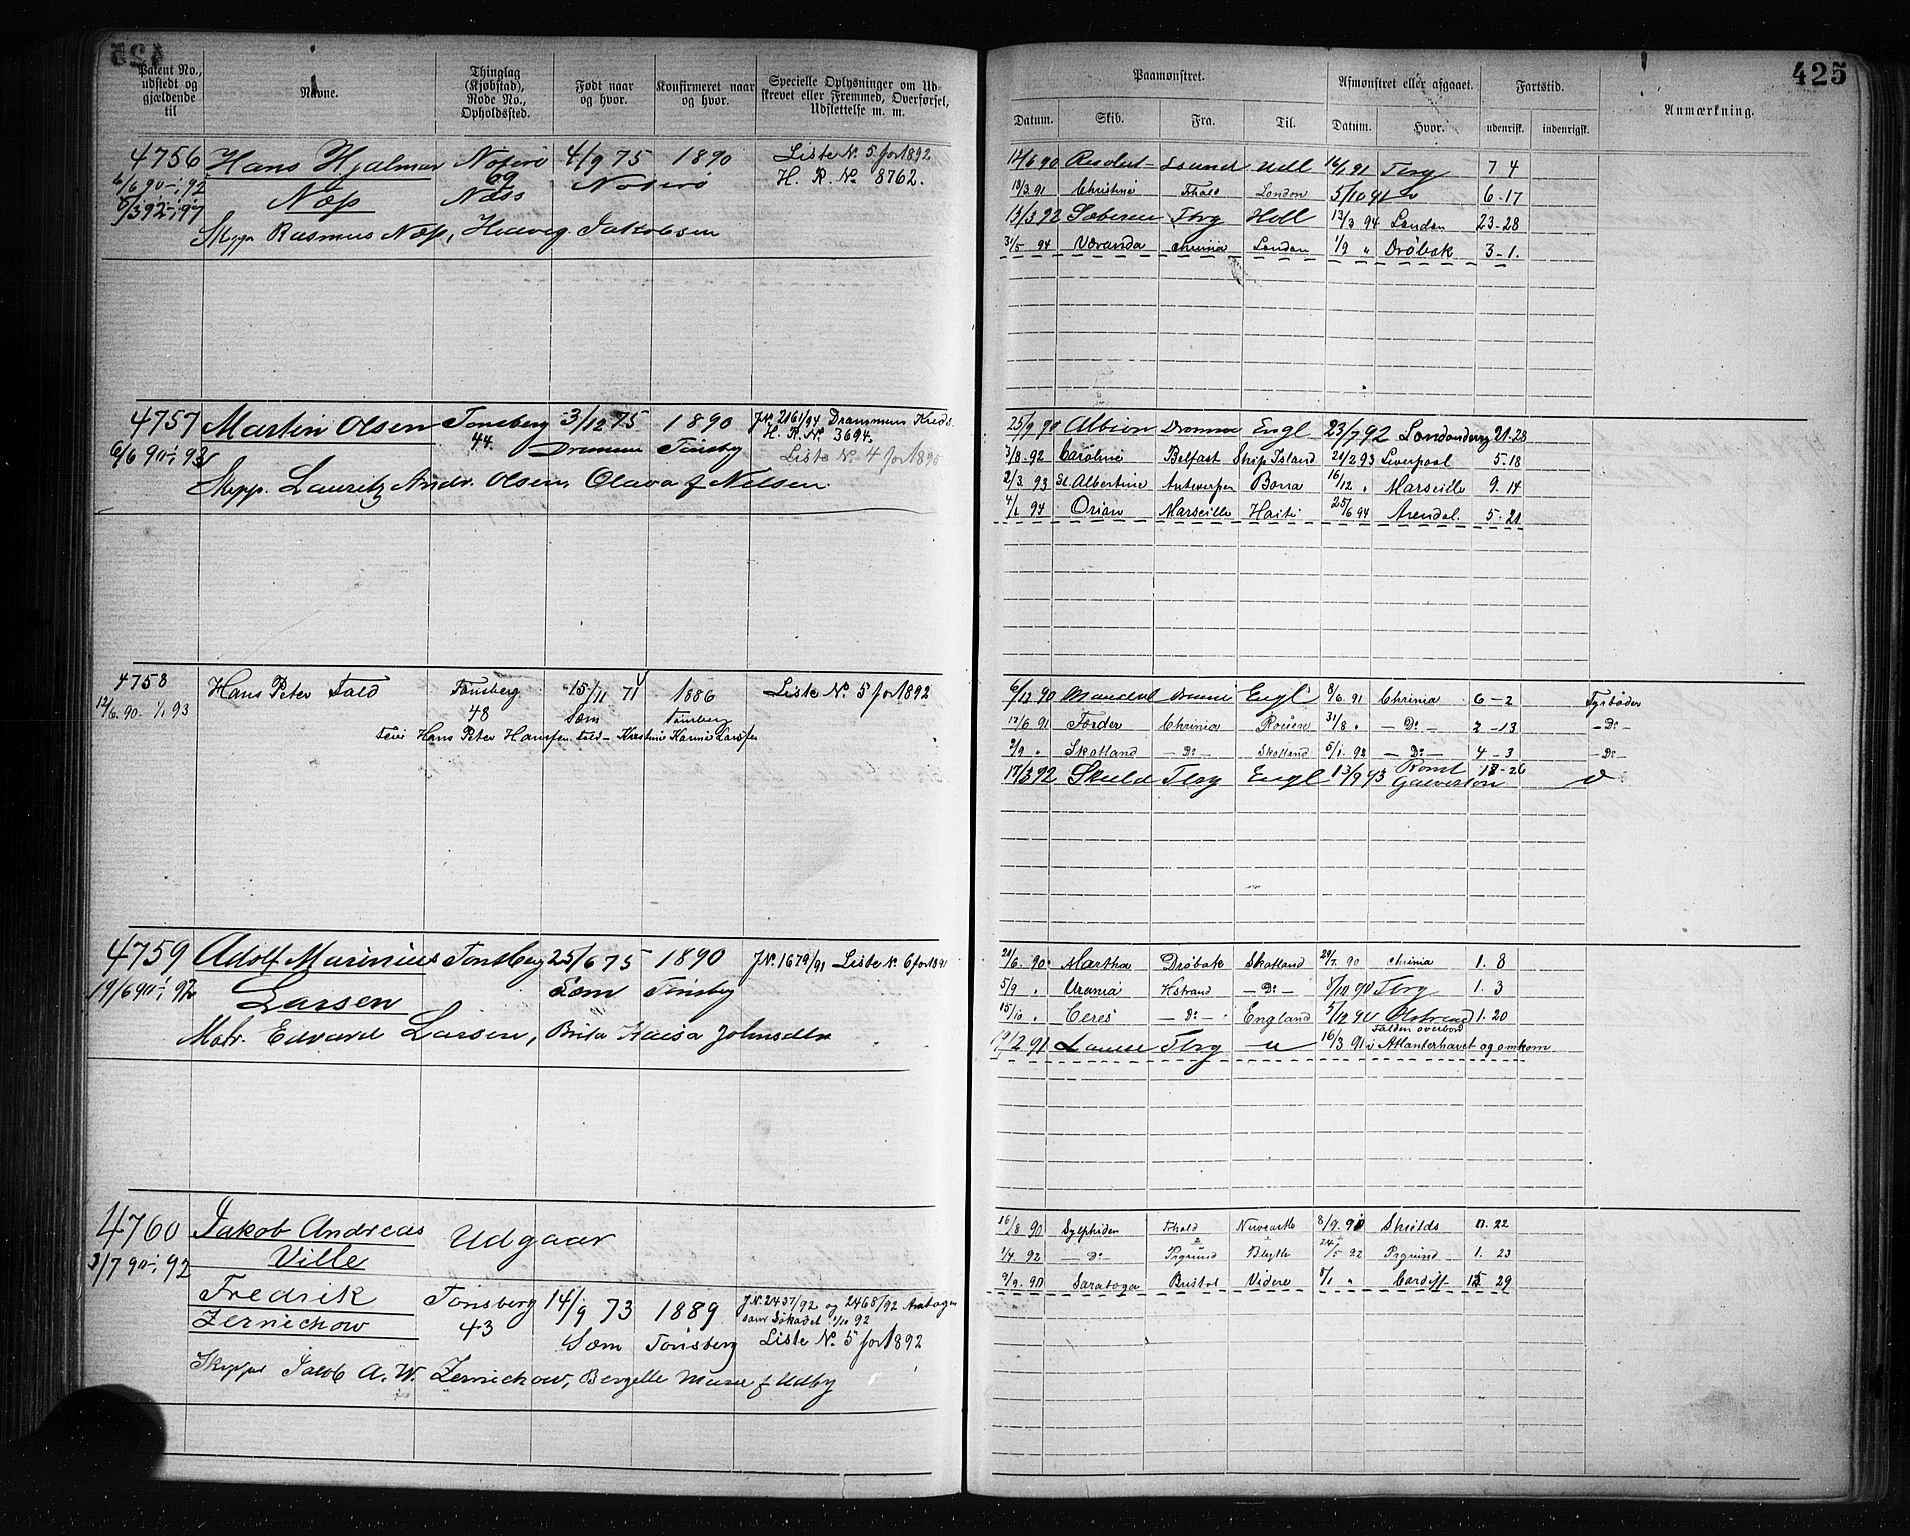 425
Patent No., udstedt og gjældende til
Navne.
Thinglag (Kjøbstad), Rode No., Opholdssted.
Født naar og hvor.
Konfirmeret naar og hvor.
Specielle Oplysninger om Udskrevet eller Fremmed, Overførsel, Udslettelse m. m.
Paamønstret.
Afmønstret eller afgaaet.
Fartstid.
Anmærkning.
Datum. Skib. Fra. Til. Datum. Hvor. udenrigsk. indenrigsk.
4756 Hans Hjalmar Nøterø 4/9 75 1890 Liste No. 5 for 1892
6/6 90 - 1/1 92 69 Nøterø H. R. No 8762.
Næss Næss
Rasmus Næss, Hedvig Jakobsen
London 16/1 91 Tbrg 7 4
18/3 91 Christine Fhald London 5/10 91 6-17
13/3 92 Tbrg Hull 13/3 94 London 23-28
31/5 94 Veranda Chrinia London 1/9 " Drøbak 3-1.
4757 Martin Olsen Tønsberg 3/12 75 1890 J.No. 2161/94 Drammens Kreds.
44. Drammen Tønsbg H. R. No 3694.
Liste No. 4 for 1895
Skipp. Lauritz Andr. Olsen, Olava f Nelsen
25/9 90 Albion Dramm Engl 23/7 92 Londonderry 21-28
3/8 92 Caroline Belfast Ship Island 21/2 93 Liverpool 5.18
2/3 93 St. Albertine Antwerpen Borra 16/12 " Marseille 9.14
4/1 94 Orion Marseille Haiti 25/6 94 Arendal. 5-21
4758 Hans Peter Fald Tønsberg 15/11 71 1886 Liste No. 5 for 1892
12/6 90 - 1/1 93 48 Sæm Tønsberg
Hans Peter Hanssen Fald - Kristine Karine Larssen
6/12 90 Engl 8/6 91 Chrinia 6-2 Fyrbøder
12/6 91 Færder Chrinia Rouen 31/8 " -Do- 2-13 -Do-
2/9 " Skotland -Do- Skotland 5/1 92 -Do- 4-3 -Do-
17/3 92 Skuld Tbrg Engl 13/9 93 Rømt Galveston 17-26
4759 Adolf Marinius Tønsberg 25/6 75 1890 J.No. 1679/91 Liste No. 6 for 1891
19/6 90 - 1/1 92 Larsen Sæm Tønsbg
Matr. Edvard Larsen, Brita Kaisa Johnsdtr
20/6 90 Martha Drøbak Skotland 29/7 90 Chrinia 1.8
5/9 " Urania Hstrand -Do- 8/10 90 Tbrg 1.3
15/10 " Ceres -Do- England 5/12 90 Hstrand 1.20
Tbrg 16/3 91 Falden overbord i Atlanterhavet og omkom
4760 Jakob Andreas Udgaar
3/7 90 - 1/1 92 Ville
Fredrik Tønsberg 14/9 73 1889 J.No. 2437/92 og 2468/92
Zernichow 43 Sæm Tønsberg
Liste No. 5 for 1892
Skipper Jakob A. W. Zernichow, Bergette Marie f Udby
26/8 90 Sylphiden Fhald 8/9 90 Shields 0.22
1/4 92 -Do- Prgrund Blyth 24/5 92 Prgrund 1.23
9/9 90 Saratoga Bristol Videre 8/1 " Cardiff 15 29